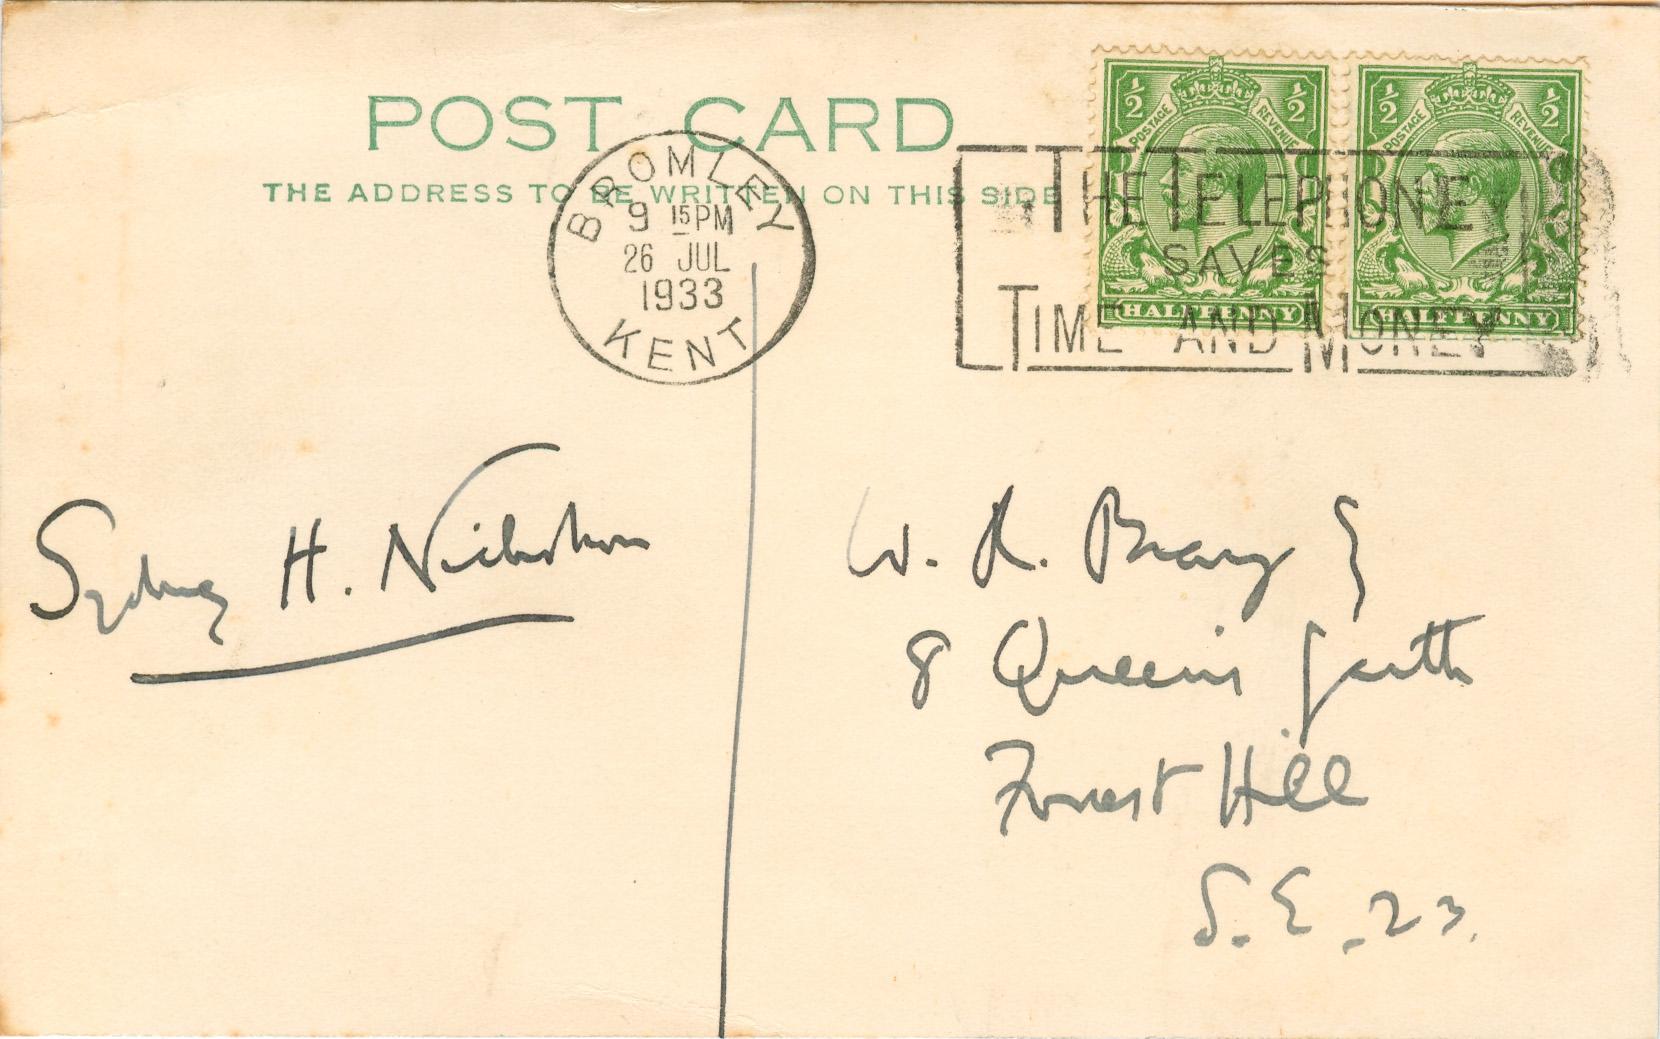 POST CARD
THE ADDRESS TO BE WRITTEN ON THIS SIDE
BROMLEY
9 15PM
26 JUL
1933
KENT
THE TELEPHONE
SAVES
TIME AND MONEY
1/2 1/2
POSTAGE REVENUE
HALFPENNY
1/2 1/2
POSTAGE REVENUE
HALFPENNY
Sydney H. Nicholson
W. R. Bray E
8 Queens Garth
Forest Hill
S.E. 23.